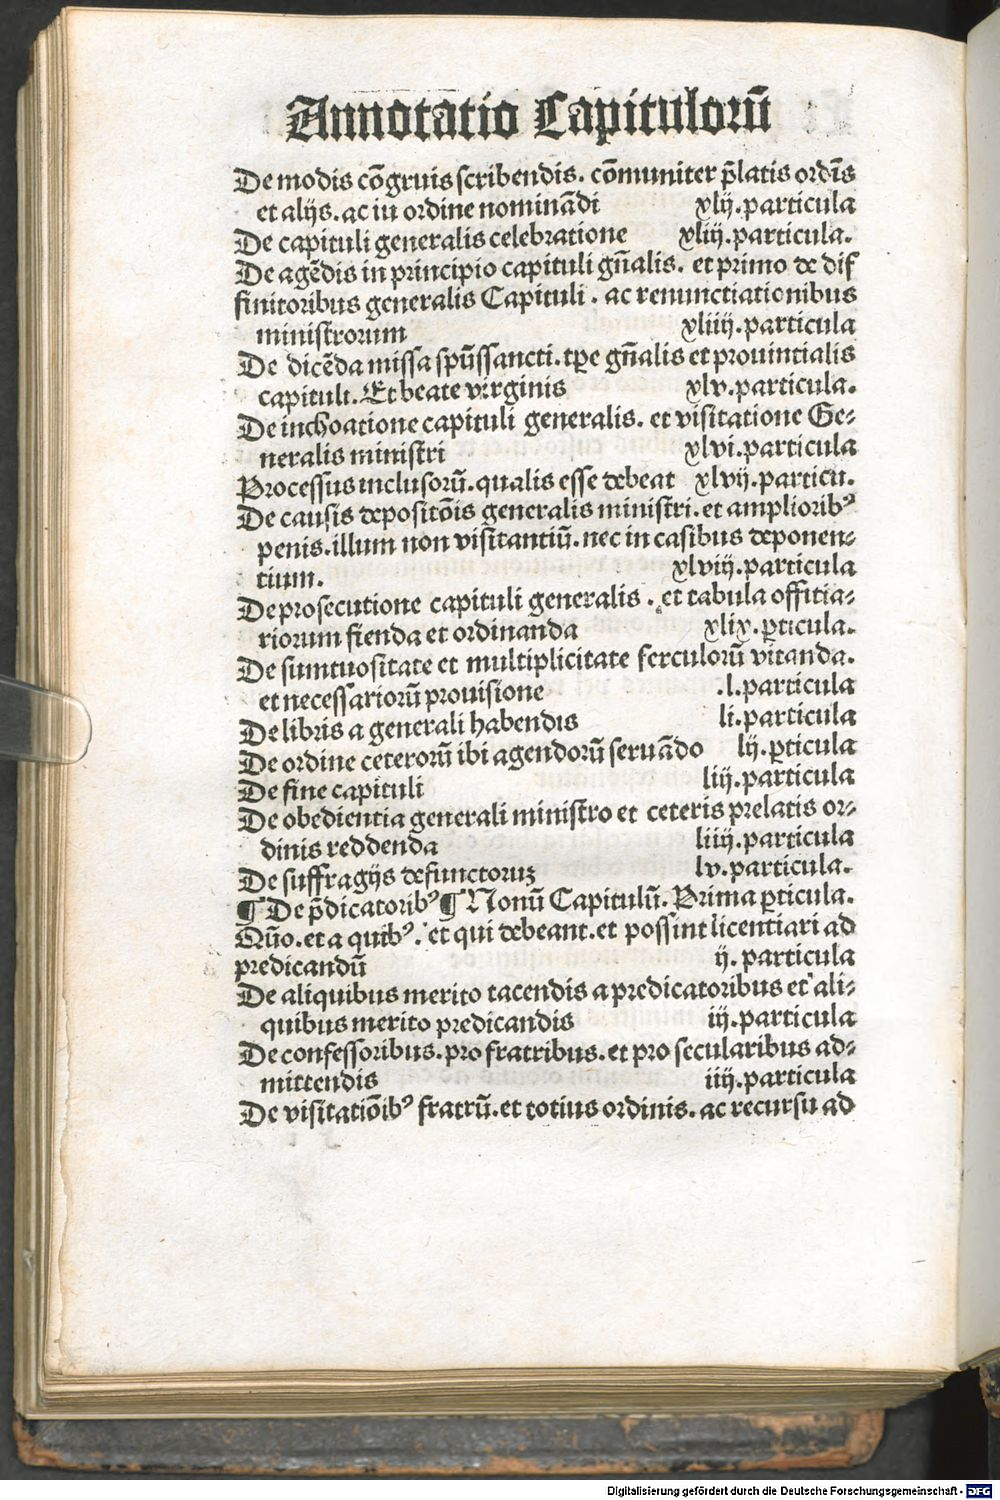 Annotatio Capitulorū
De modis cōgruis scribendis. cōmuniter p̄latis ordīs
et alijs. ac iu ordine nominādi xlij. particula
De capituli generalis celebratione xliij. particula.
De agēdis in principio capituli gn̄alis. et primo de dif
finitoribus generalis Capituli. ac renunctiationibus
ministrorum xliiij. particula
De dicēda missa spūssancti. tp̄e gn̄alis et prouintialis
capituli. Et beate virginis xlv. particula.
De inchoatione capituli generalis. et visitatione Ge-
neralis ministri xlvi. particula
Processus inclusorū. qualis esse debeat xlvij. particu.
De causis depositōis generalis ministri. et ampliorib⁹
penis. illum non visitantiū. nec in casibus deponen-
tium. xlviij. particula
De prosecutione capituli generalis. et tabula offitia-
riorum fienda et ordinanda xlix. ꝑticula.
De sumtuositate et multiplicitate ferculorū vitanda.
et necessariorū prouisione .l. particula
De libris a generali habendis li. particula
De ordine ceterorū ibi agendorū seruādo lij. ꝑticula
De fine capituli liij. particula
De obedientia generali ministro et ceteris prelatis or-
dinis reddenda liiij. particula
De suffragijs defunctoruꝫ lv. particula.
¶ De p̄dicatorib⁹ ¶ Nonū Capitulū. Prima ꝑticula.
Qūo. et a quib⁹. et qui debeant. et possint licentiari ad
predicandū ij. particula
De aliquibus merito tacendis a predicatoribus et ali-
quibus merito predicandis iij. particula
De confessoribus. pro fratribus. et pro secularibus ad-
mittendis iiij. particula
De visitatiōib⁹ fratrū. et totius ordinis. ac recursu ad
Digitalisierung gefördert durch die Deutsche Forschungsgemeinschaft - DFG